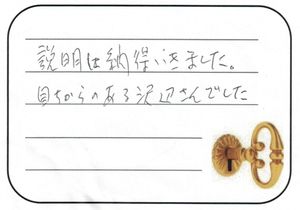 説明は納得いきました。
目ぢからのある沢辺さんでした